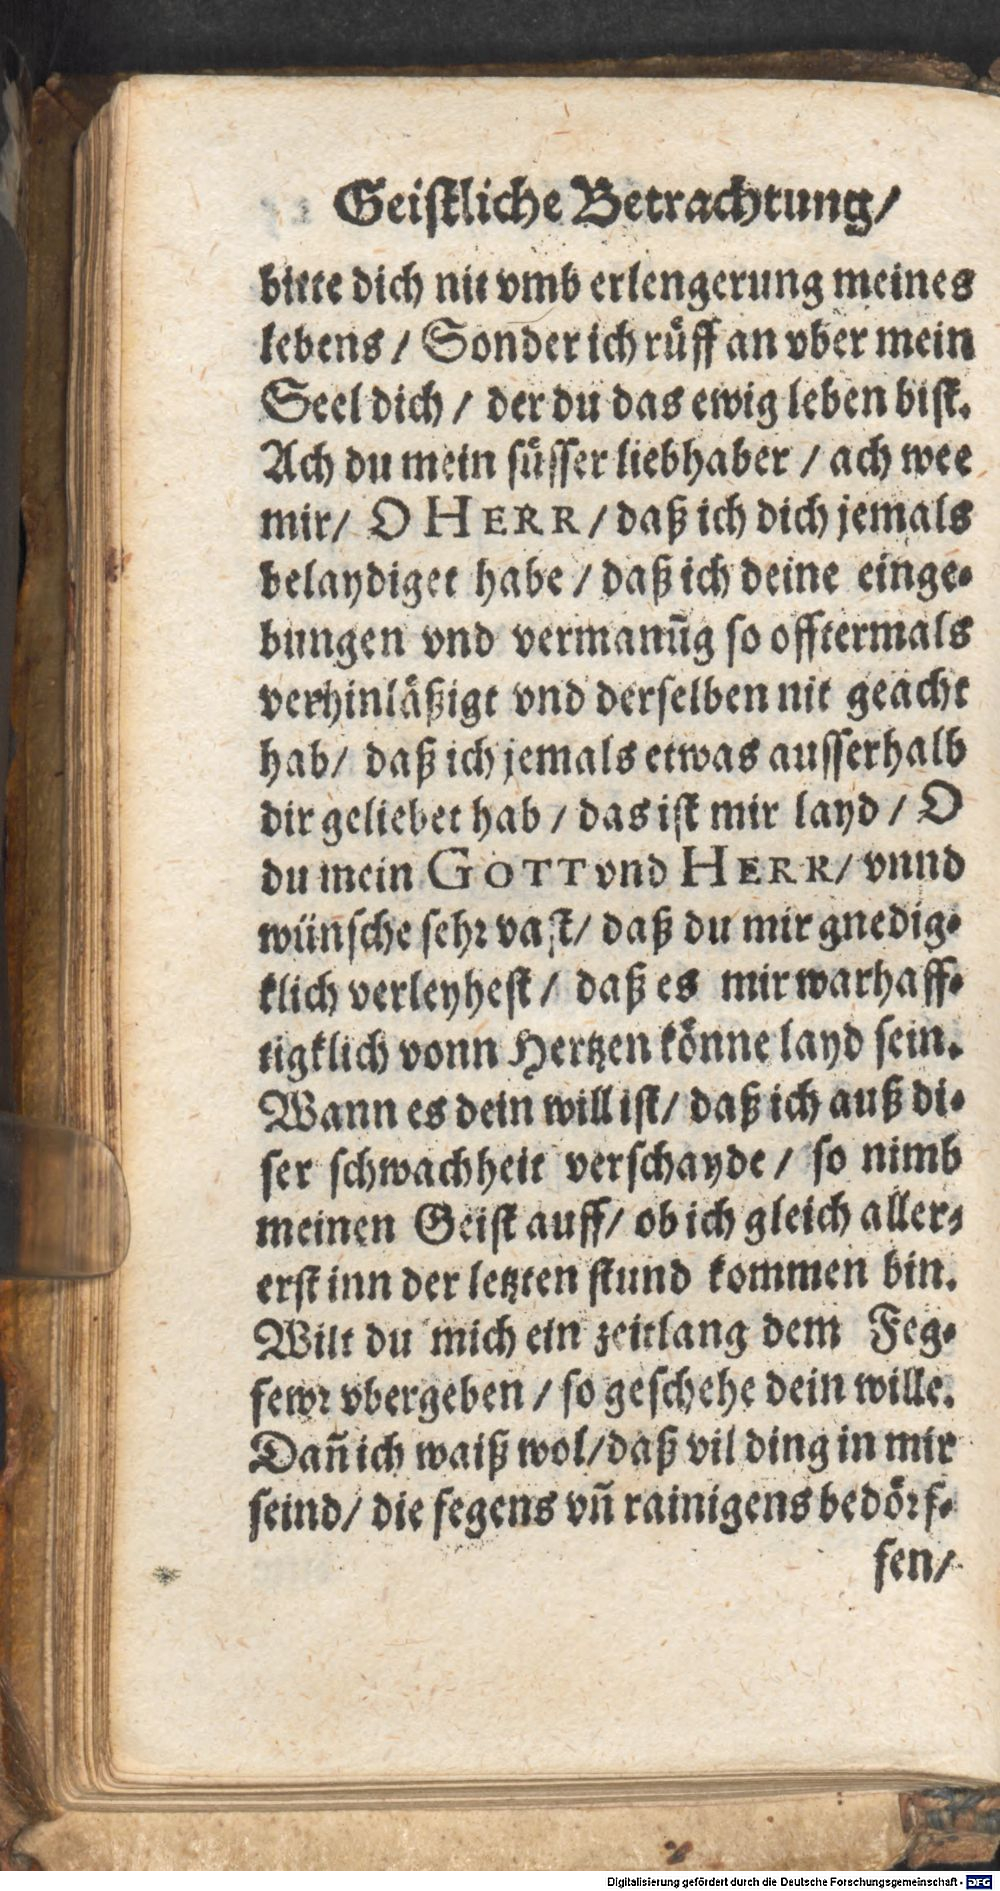 Geistliche Betrachtung/
bitte dich nit vmb erlengerung meines
lebens / Sonder ich růff an vber mein
Seel dich / der du das ewig leben bist.
Ach du mein süsser liebhaber / ach wee
mir/ O HERR / daß ich dich jemals
belaydiget habe / daß ich deine einge-
bungen vnd vermanũg so offtermals
verhinläßigt vnd derselben nit geacht
hab/ daß ich jemals etwas ausserhalb
dir geliebet hab / das ist mir layd / O
du mein GOTT vnd HERR/ vnnd
wünsche sehr vast/ daß du mir gnedig-
klich verleyhest / daß es mir warhaff-
tigklich vonn Hertzen könne layd sein.
Wann es dein will ist/ daß ich auß di-
ser schwachheit verschayde / so nimb
meinen Geist auff/ ob ich gleich aller-
erst inn der letzten stund kommen bin.
Wilt du mich ein zeitlang dem Feg-
fewr vbergeben / so geschehe dein wille.
Dañ ich waiß wol/daß vil ding in mir
seind/ die fegens vñ rainigens bedörf-
fen/
Digitalisierung gefördert durch die Deutsche Forschungsgemeinschaft - DFG